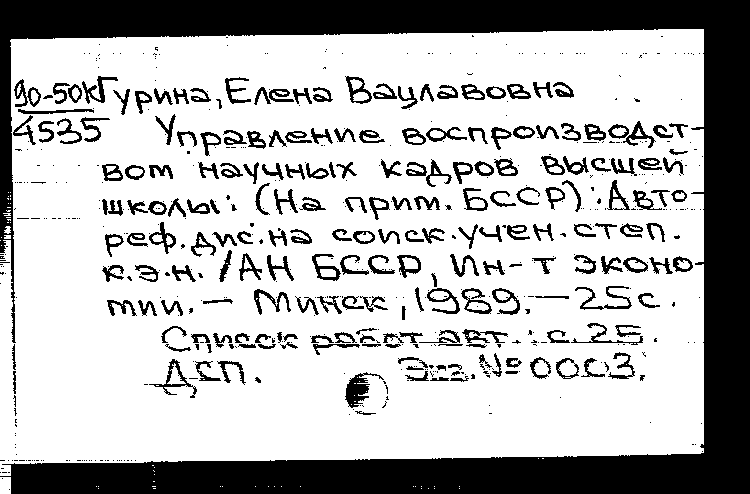 90-50К Гурина, Елена Вацлавовна
4535 Управление воспроизводст-
вом научных кадров высшей
школы: (На прим. БССР): Авто-
реф. дис. на соиск. учен. степ.
к.э.н. / АН БССР, Ин-т эконо-
мии. — Минск, 1989. — 25 с.
Список работ авт.: с. 25.
ДСП. Экз. № 0003.